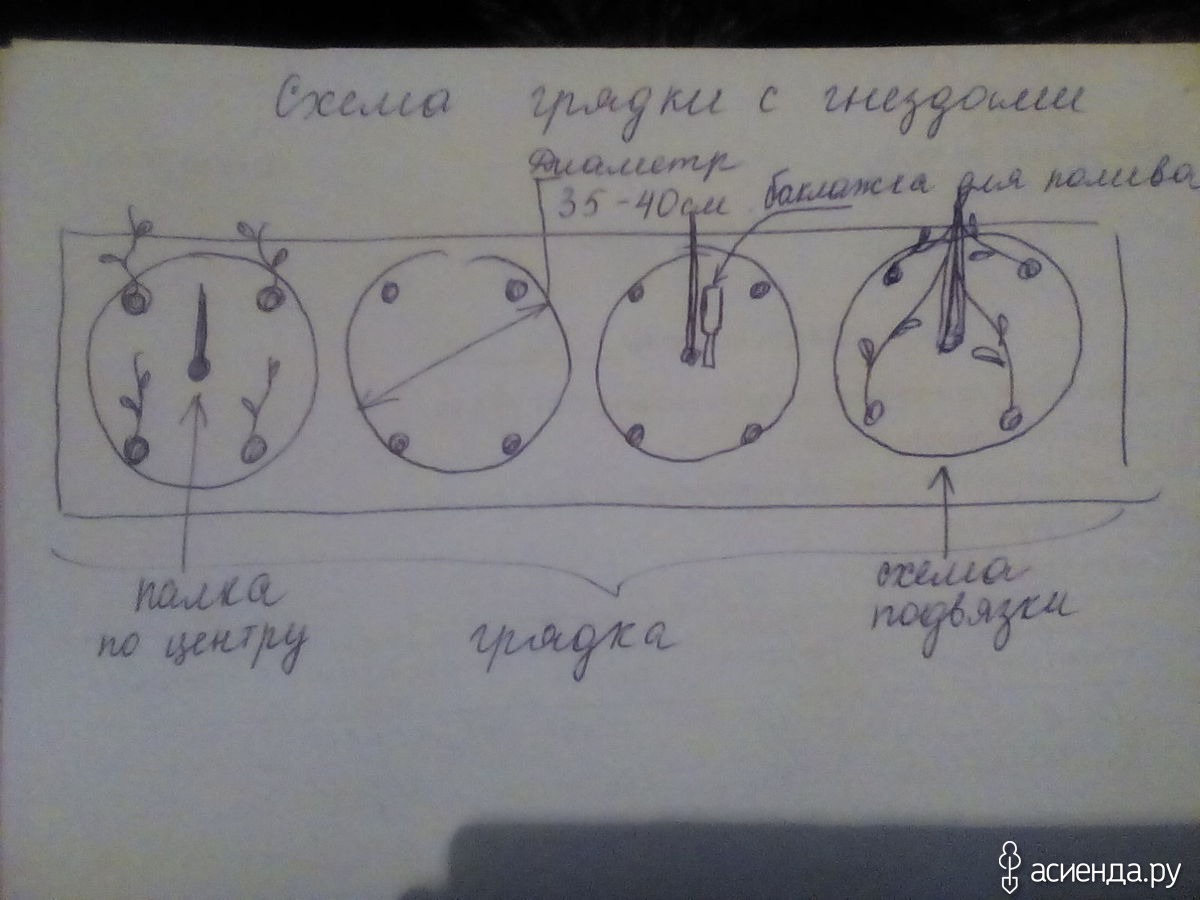 Схема грядки с гнездами
Диаметр
35-40см
баклажка для полива
палка
по центру
грядка
схема
подвязки
асиенда.ру